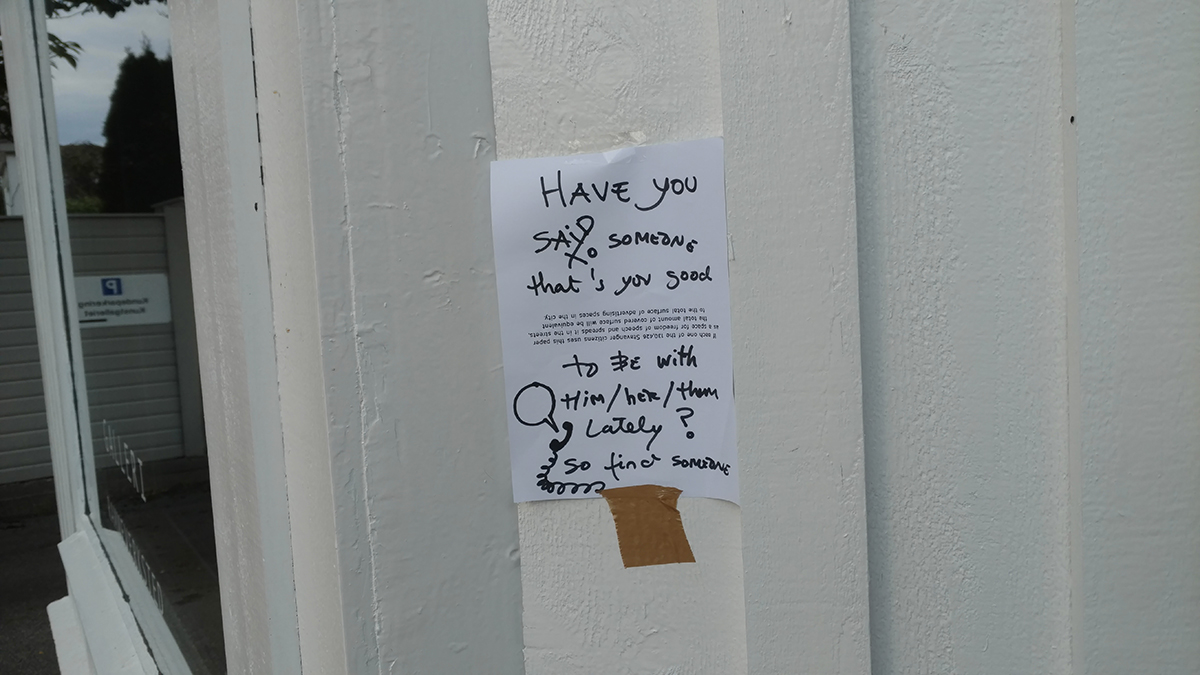 HAVE YOU
SAID TO SOMEONE
that's you good
If each one of the 130,426 Stavanger citizens uses this paper
as a space for freedom of speech and spreads it in the streets,
the total amount of covered surface will be equivalent
to the total surface of advertising spaces in the city.
to BE with
Him/her/them
Lately?
so find SOMEONE
P
Kundeparkering
Kunstgalleriet